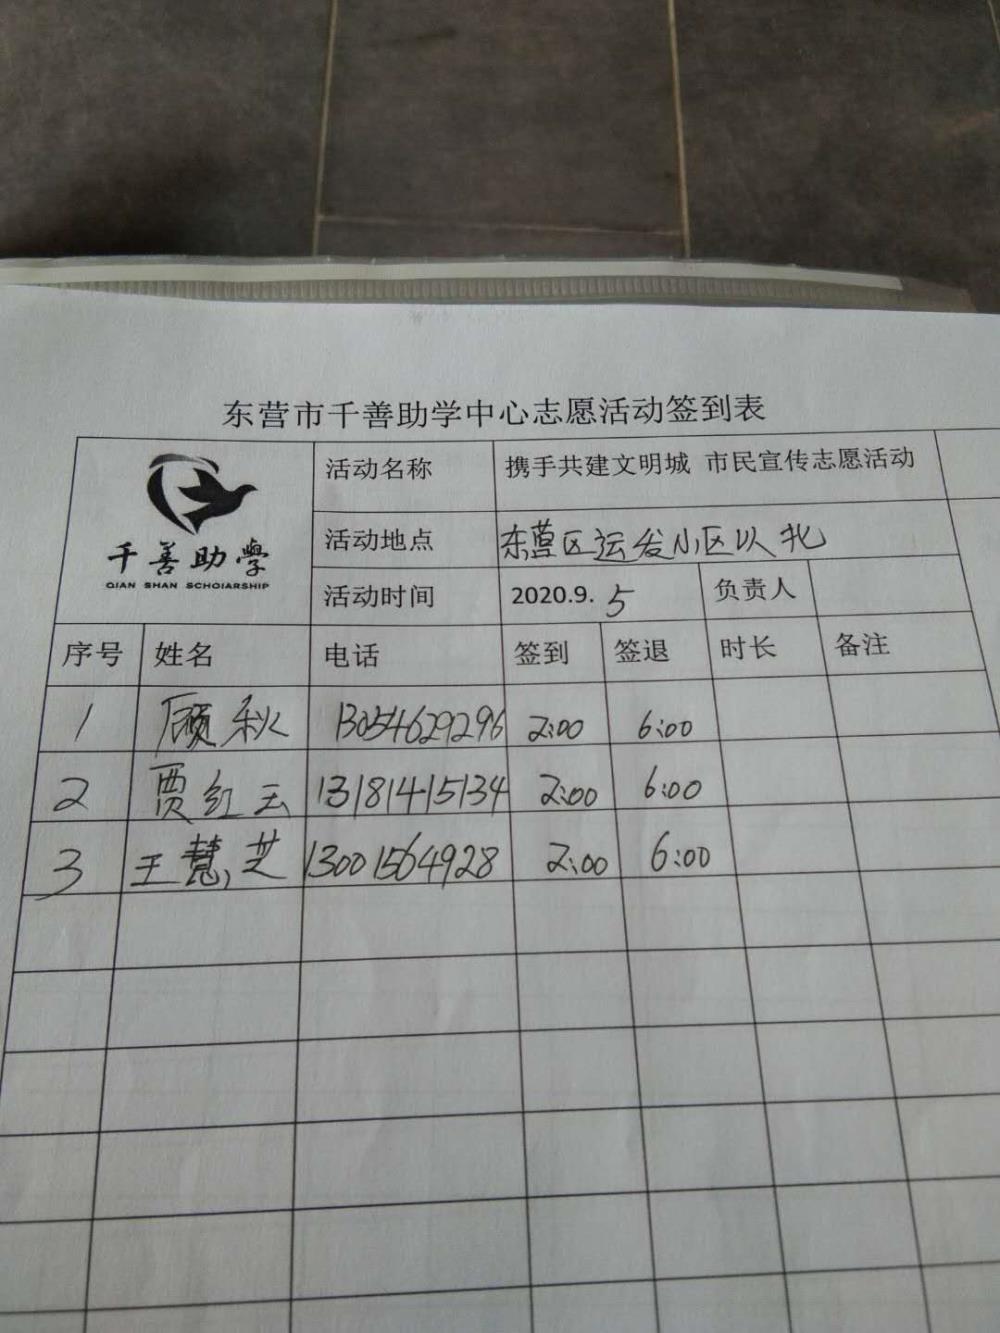 东营市千善助学中心志愿活动签到表
千善助学
QIAN SHAN SCHOIARSHIP
活动名称 携手共建文明城 市民宣传志愿活动
活动地点 东营区运发小区以北
活动时间 2020.9. 5 负责人
序号 姓名 电话 签到 签退 时长 备注
1 顾秋 13054629296 2:00 6:00
2 贾红云 13181415134 2:00 6:00
3 王慧芝 13001564928 2:00 6:00